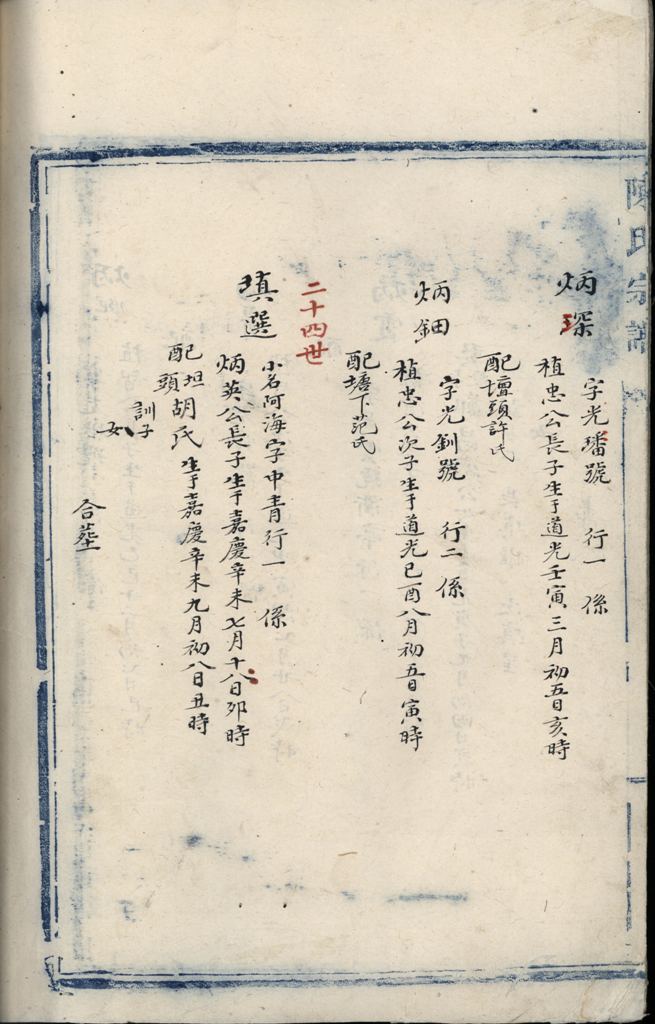 陳氏宗譜
炳琛
字光璠號 行一 係
植忠公長子生于道光壬寅三月初五日亥時
配壇頭許氏
炳鈿
字光釧號 行二 係
植忠公次子生于道光己酉八月初五日寅時
配塘下范氏
二十四世
瑱選
小名阿海字中青行一 係
炳英公長子生于嘉慶辛未七月十八日卯時
配坦頭胡氏生于嘉慶辛未九月初八日丑時
訓子
女
合塟